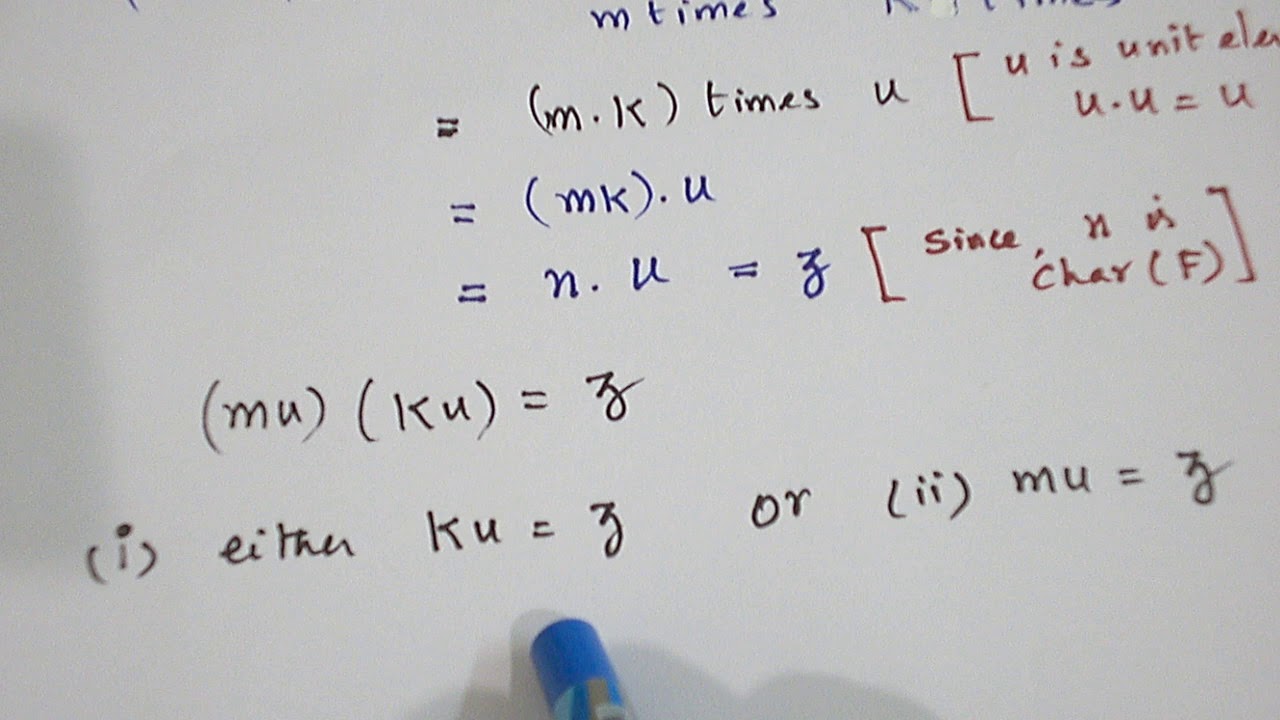 m times
= (m.k) times u [u is unit
u.u = u
= (mk).u
= n.u = z [since, n is
char(F)]
(mu)(ku) = z
(i) either ku = z or (ii) mu = z